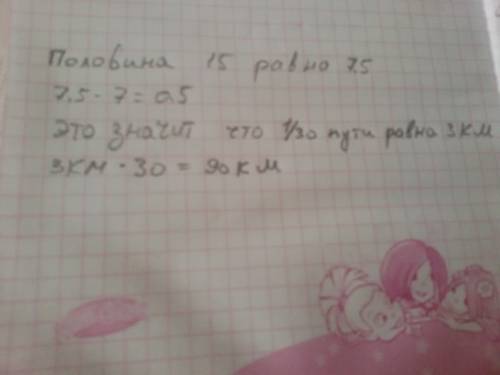 Половина 15 равно 7.5
7.5 - 7 = 0.5
Это значит что 1/30 пути равно 3 км
3км · 30 = 90 км